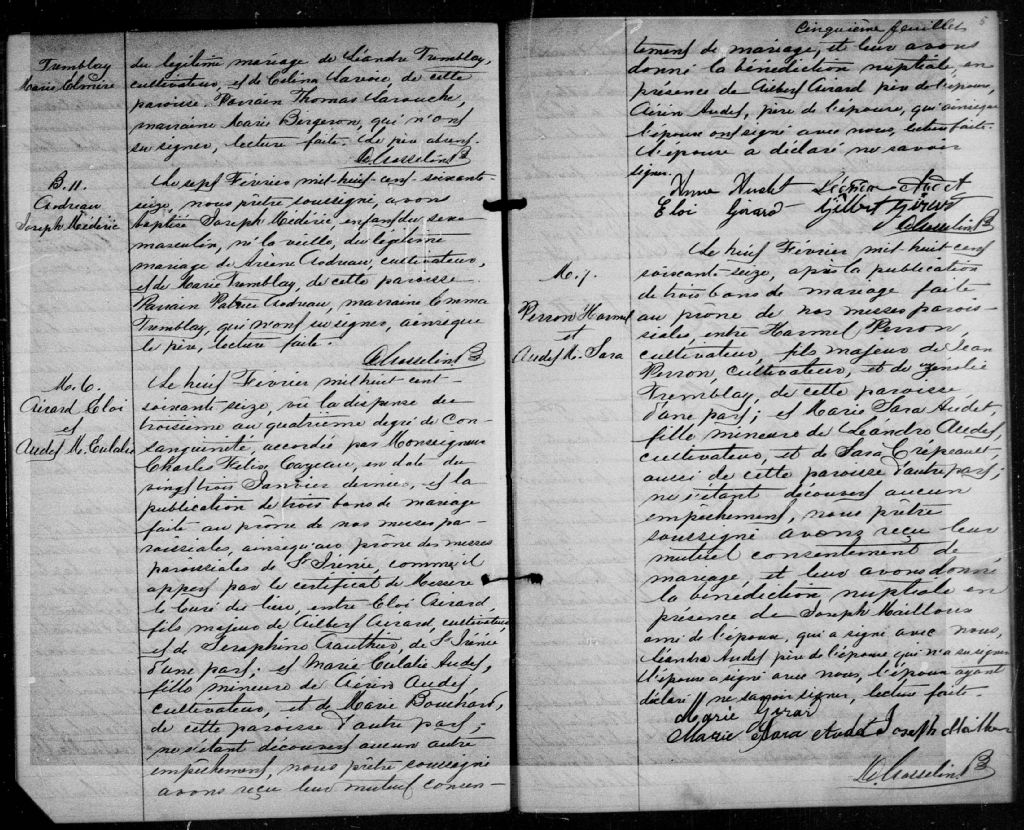 Tremblay
Marie Elmire
du légitime mariage de Léandre Tremblay,
cultivateur, et de Célina Savoie de cette
paroisse. Parrain Thomas Larouche,
marraine Marie Bergeron, qui n'ont
su signer, lecture faite. Le père absent.
Gosselin Ptre
B. 11.
Audreau
Joseph Médéric
Le sept Février mil-huit-cent-soixante-
seize, nous prêtre soussigné, avons
baptisé Joseph Médéric, enfant du sexe
masculin, né la veille, du légitime
mariage de Arsène Audreau, cultivateur,
et de Marie Tremblay, de cette paroisse.
Parrain Patrice Audreau, marraine Emma
Tremblay, qui n'ont su signer, ainsi que
le père, lecture faite.
Gosselin Ptre
M. 6.
Girard Eloi
et
Audet M. Eulalie
Le huit Février mil huit cent-
soixante-seize, vu la dispense du
troisième au quatrième degré de con-
sanguinité, accordée par Monseigneur
Charles Félix Cazeau, en date du
vingt trois Janvier dernier, et la
publication de trois bans de mariage
faite au prône de nos messes pa-
roissiales, ainsi qu'au prône des messes
paroissiales de St Irénée, comme il
appert par le certificat de Messire
le Curé du lieu, entre Eloi Girard,
fils majeur de Gilbert Girard, cultivateur,
et de Séraphine Gauthier, de St Irénée
d'une part; et Marie Eulalie Audet,
fille mineure de Gérin Audet,
cultivateur, et de Marie Bouchard,
de cette paroisse d'autre part;
ne s'étant découvert aucun autre
empêchement, nous prêtre soussigné
avons reçu leur mutuel consen-
5
Cinquième feuillet
tement de mariage, et leur avons
donné la bénédiction nuptiale, en
présence de Gilbert Girard père de l'époux,
Gérin Audet, père de l'épouse, qui ainsi que
l'époux ont signé avec nous, lecture faite.
L'épouse a déclaré ne savoir
signer.
Audet
Eloi Girard Gilbert Girard
Gosselin Ptre
M. 7.
Perron Harmel
et
Audet M. Sara
Le huit Février mil huit cent
soixante-seize, après la publication
de trois bans de mariage faite
au prône de nos messes parois-
siales, entre Harmel Perron,
cultivateur, fils majeur de Jean
Perron, cultivateur, et de Zénobie
Tremblay, de cette paroisse
d'une part; et Marie Sara Audet,
fille mineure de Léandre Audet,
cultivateur, et de Sara Crépeault,
aussi de cette paroisse d'autre part;
ne s'étant découvert aucun
empêchement, nous prêtre
soussigné avons reçu leur
mutuel consentement de
mariage, et leur avons donné
la bénédiction nuptiale en
présence de Joseph Mailloux
ami de l'époux, qui a signé avec nous,
Léandre Audet père de l'épouse qui n'a su signer
L'épouse a signé avec nous, l'époux ayant
déclaré ne savoir signer, lecture faite.
Marie Girar
Marie Sara Audet Joseph Mailloux
Gosselin Ptre